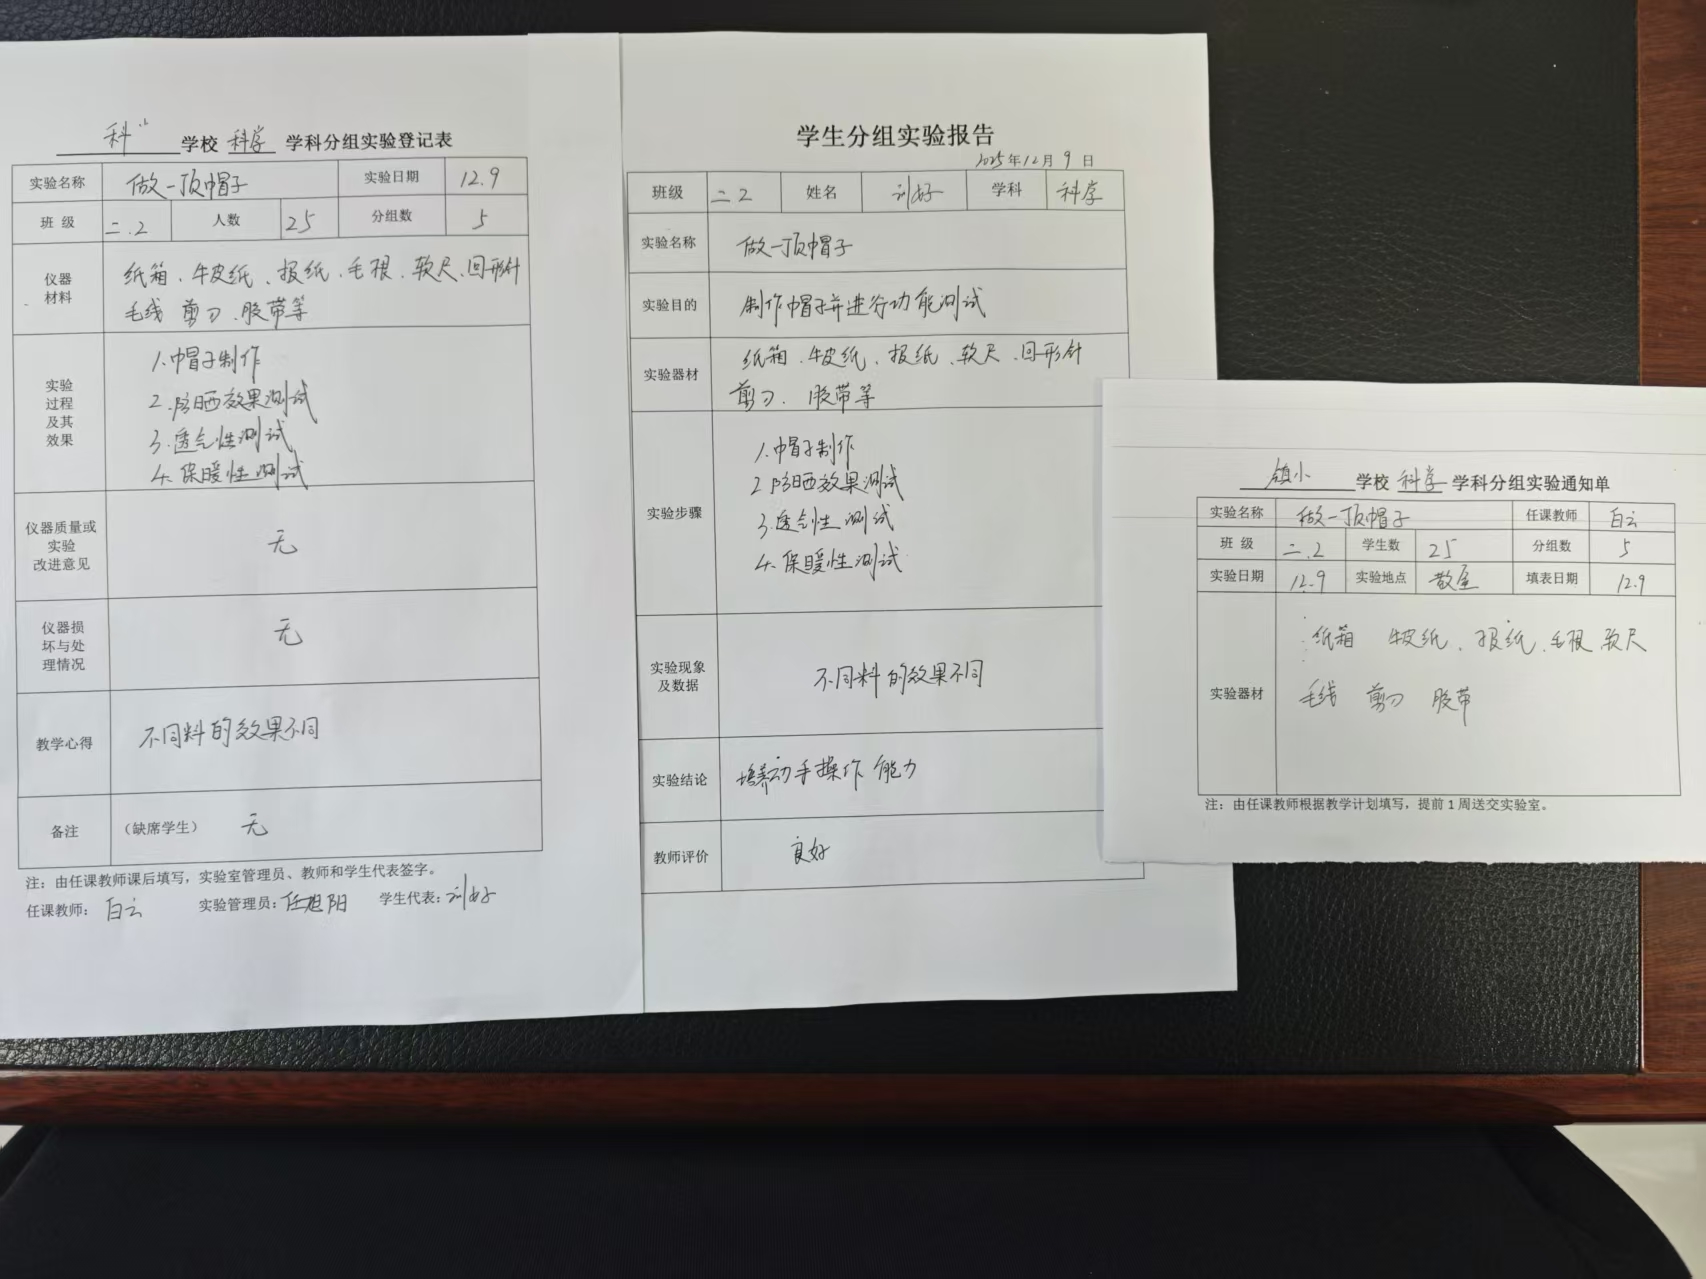 科小 学校 科学 学科分组实验登记表
实验名称 做一顶帽子 实验日期 12.9
班 级 二.2 人数 25 分组数 5
仪器材料 纸箱、牛皮纸、报纸、毛根、软尺、回形针
毛线 剪刀、胶带等
实验过程及其效果
1.帽子制作
2.防晒效果测试
3.透气性测试
4.保暖性测试
仪器质量或实验改进意见 无
仪器损坏与处理情况 无
教学心得 不同料的效果不同
备注 (缺席学生) 无
注：由任课教师课后填写，实验室管理员、教师和学生代表签字。
任课教师：白云 实验管理员：任旭阳 学生代表：刘好
学生分组实验报告
2025年12月9日
班级 二2 姓名 刘好 学科 科学
实验名称 做一顶帽子
实验目的 制作帽子并进行功能测试
实验器材 纸箱、牛皮纸、报纸、软尺、回形针
剪刀、胶带等
实验步骤
1.帽子制作
2.防晒效果测试
3.透气性测试
4.保暖性测试
实验现象及数据 不同料的效果不同
实验结论 培养动手操作能力
教师评价 良好
镇小 学校 科学 学科分组实验通知单
实验名称 做一顶帽子 任课教师 白云
班 级 二.2 学生数 25 分组数 5
实验日期 12.9 实验地点 教室 填表日期 12.9
实验器材 纸箱 牛皮纸、报纸、毛根、软尺
毛线 剪刀 胶带
注：由任课教师根据教学计划填写，提前1周送交实验室。